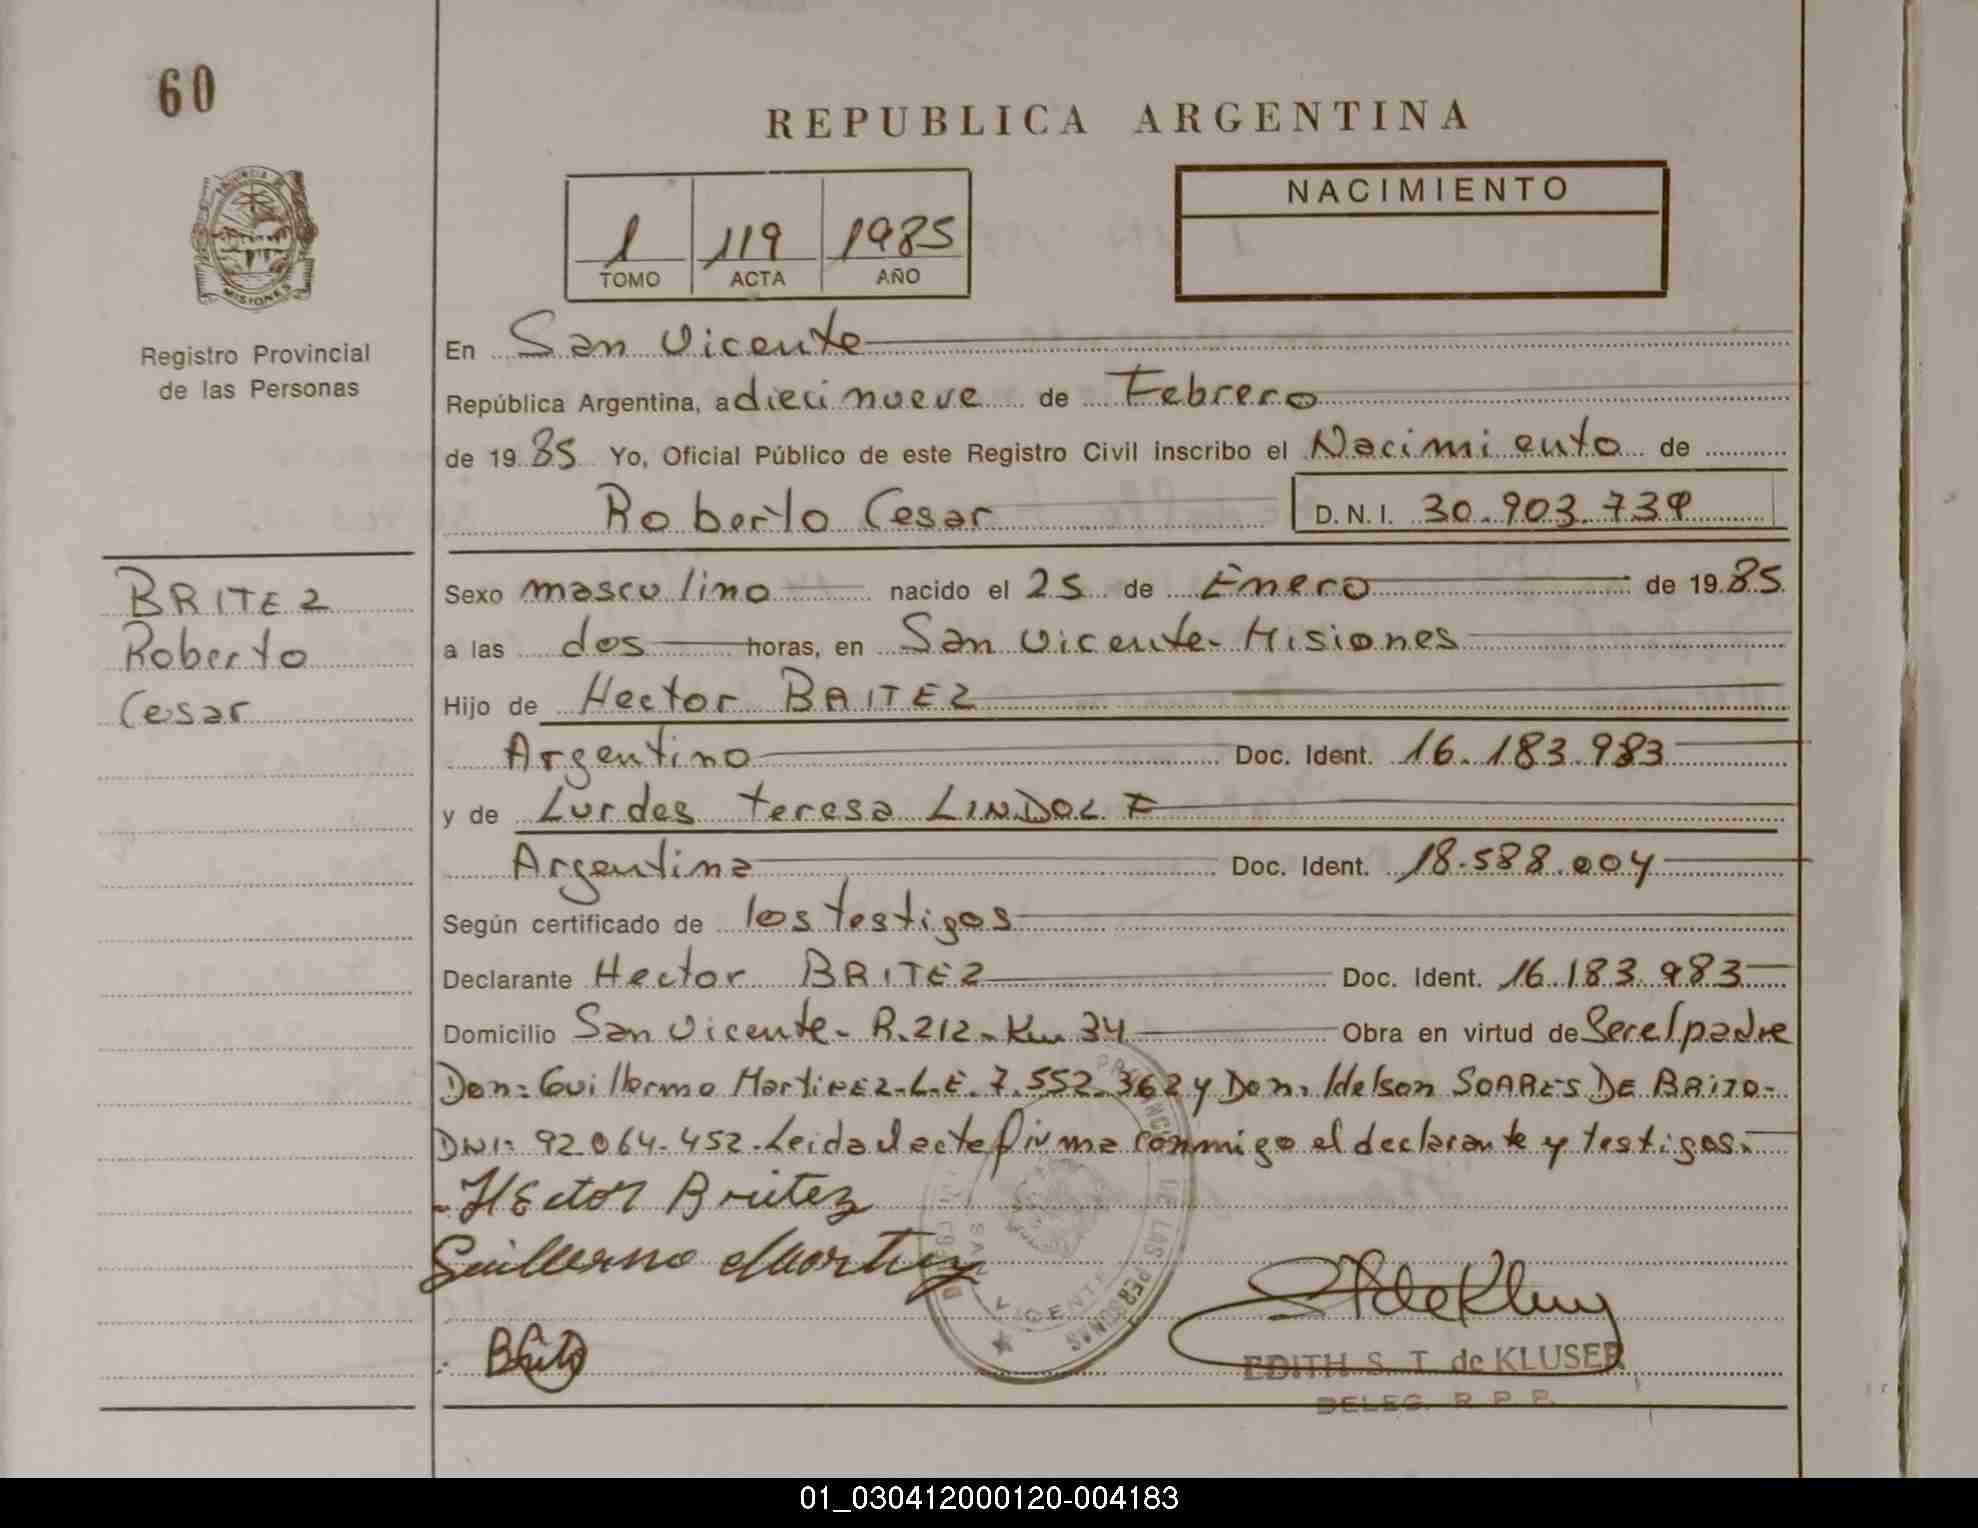 60
REPUBLICA ARGENTINA
PROVINCIA DE
MISIONES
Registro Provincial
de las Personas
1 119 1985
TOMO ACTA AÑO
NACIMIENTO
En San Vicente
República Argentina, a dieci nueve de Febrero
de 19 85 Yo, Oficial Público de este Registro Civil inscribo el Nacimiento de
Roberto Cesar D. N. I. 30.903.739
BRITEZ
Roberto
Cesar
Sexo masculino nacido el 25 de Enero de 19 85
a las dos horas, en San Vicente- Misiones
Hijo de Hector BRITEZ
Argentino Doc. Ident. 16.183.983
y de Lurdes teresa LINDOLF
Argentina Doc. Ident. 18.588.004
Según certificado de los testigos
Declarante Hector BRITEZ Doc. Ident. 16.183.983
Domicilio San Vicente- R.212- Km 34 Obra en virtud de Ser el padre
Don: Guillermo MartiNEZ-L.E. 7.552.362 y Don: Idelson SOARES DE BRITO-
DNI: 92.064.452.Leida el acta firma conmigo el declarante y testigos.
-HEctor Britez
Guillermo Martinez
Brito
DE LAS PERSONAS
SAN VICENTE
EDITH S. T. de KLUSER
DELEG. R. P. P.
01_030412000120-004183